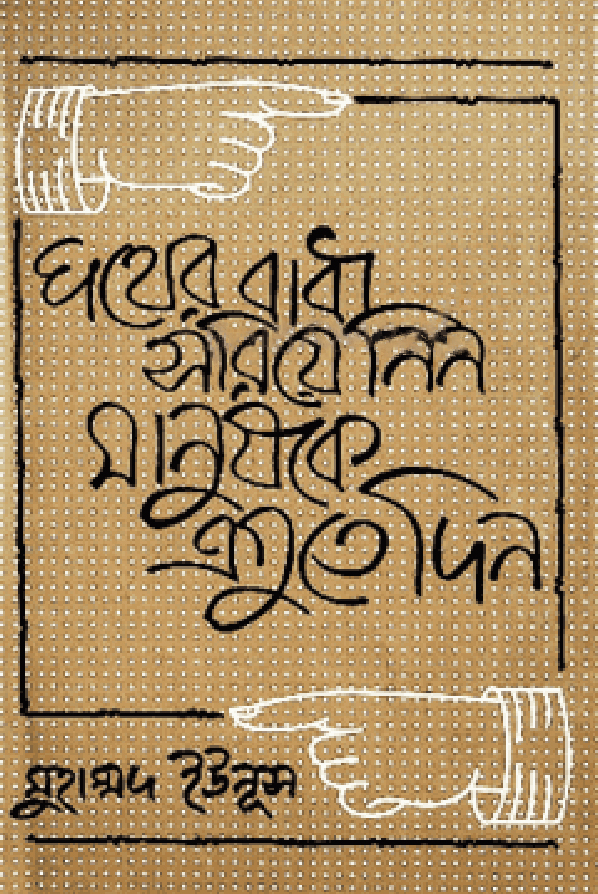 পথের বাধা
সরিয়ে নিন
মানুষকে
এগুতে দিন
মুহাম্মদ ইউনূস